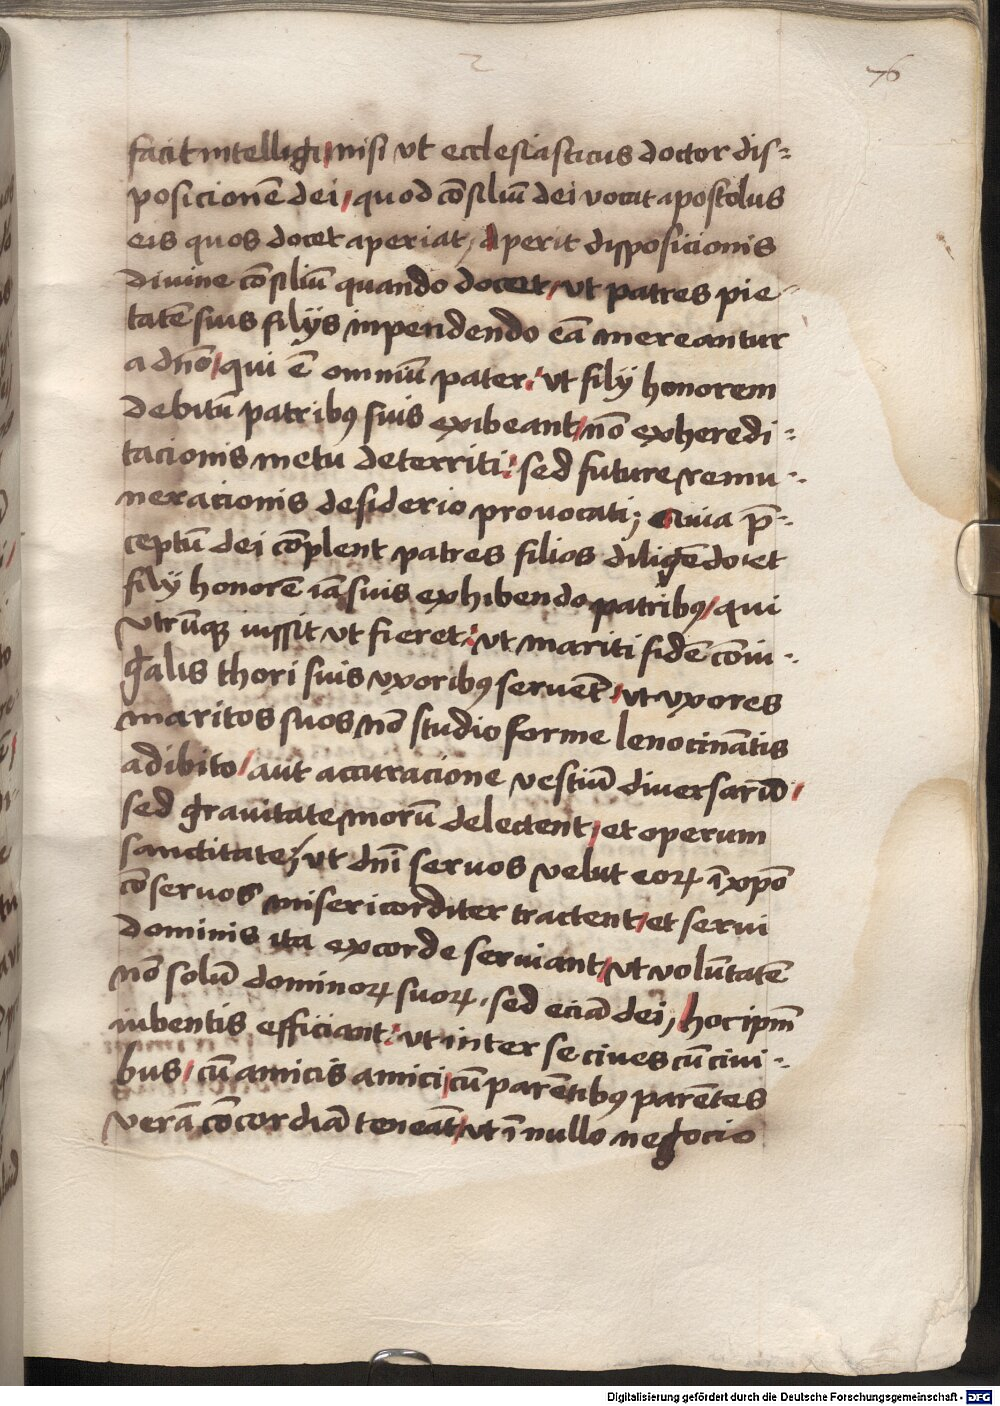 2
76
facit intelligi / nisi ut ecclesiasticus doctor dis=
posicionē dei / quod cōsiliū dei vocat apostolus
eis quos docet aperiat ; Aperit disposicionis
divine cōsiliū quando docet / ut patres pie-
tatē suis filijs inpendendo eā mereantur
a dño / qui ē omniū pater : / ut filij honorem
debitū patribꝫ suis exibeant / nō exheredi=
tacionis metu deterriti : sed future remu=
neracionis desiderio provocati ; Quia p̄=
ceptū dei cōplent patres filios diligēdo et
filij honorē iā suis exhibendo patribꝫ / qui
utrūqꝫ iussit ut fieret : ut mariti fidē coniu=
galis thori suis uxoribꝫ servēt / ut uxores
maritos suos nō studio forme lenocinātis
adibito / aut accuracione vestiū diversarū /
sed gravitate morū delectent / et operum
sanctitate ; ut dñi servos velut eoꝝ ī xpō
cōservos misericorditer tractent / et servi
dominis ita ex corde serviant / ut volūtatē
nō solū dominoꝝ suoꝝ . sed eciā dei ; hoc ipm̄
iubentis efficiant : ut inter se cives cū civi=
bus / cū amicis amici / cū parētibꝫ parētes
verā cōcordiā teneāt / ut ī nullo negocio
Digitalisierung gefördert durch die Deutsche Forschungsgemeinschaft - DFG